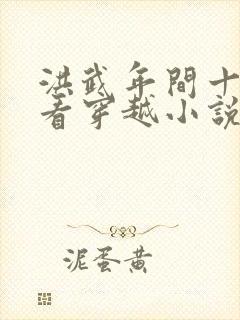 洪武年間十
看穿越小説
泥蛋黄